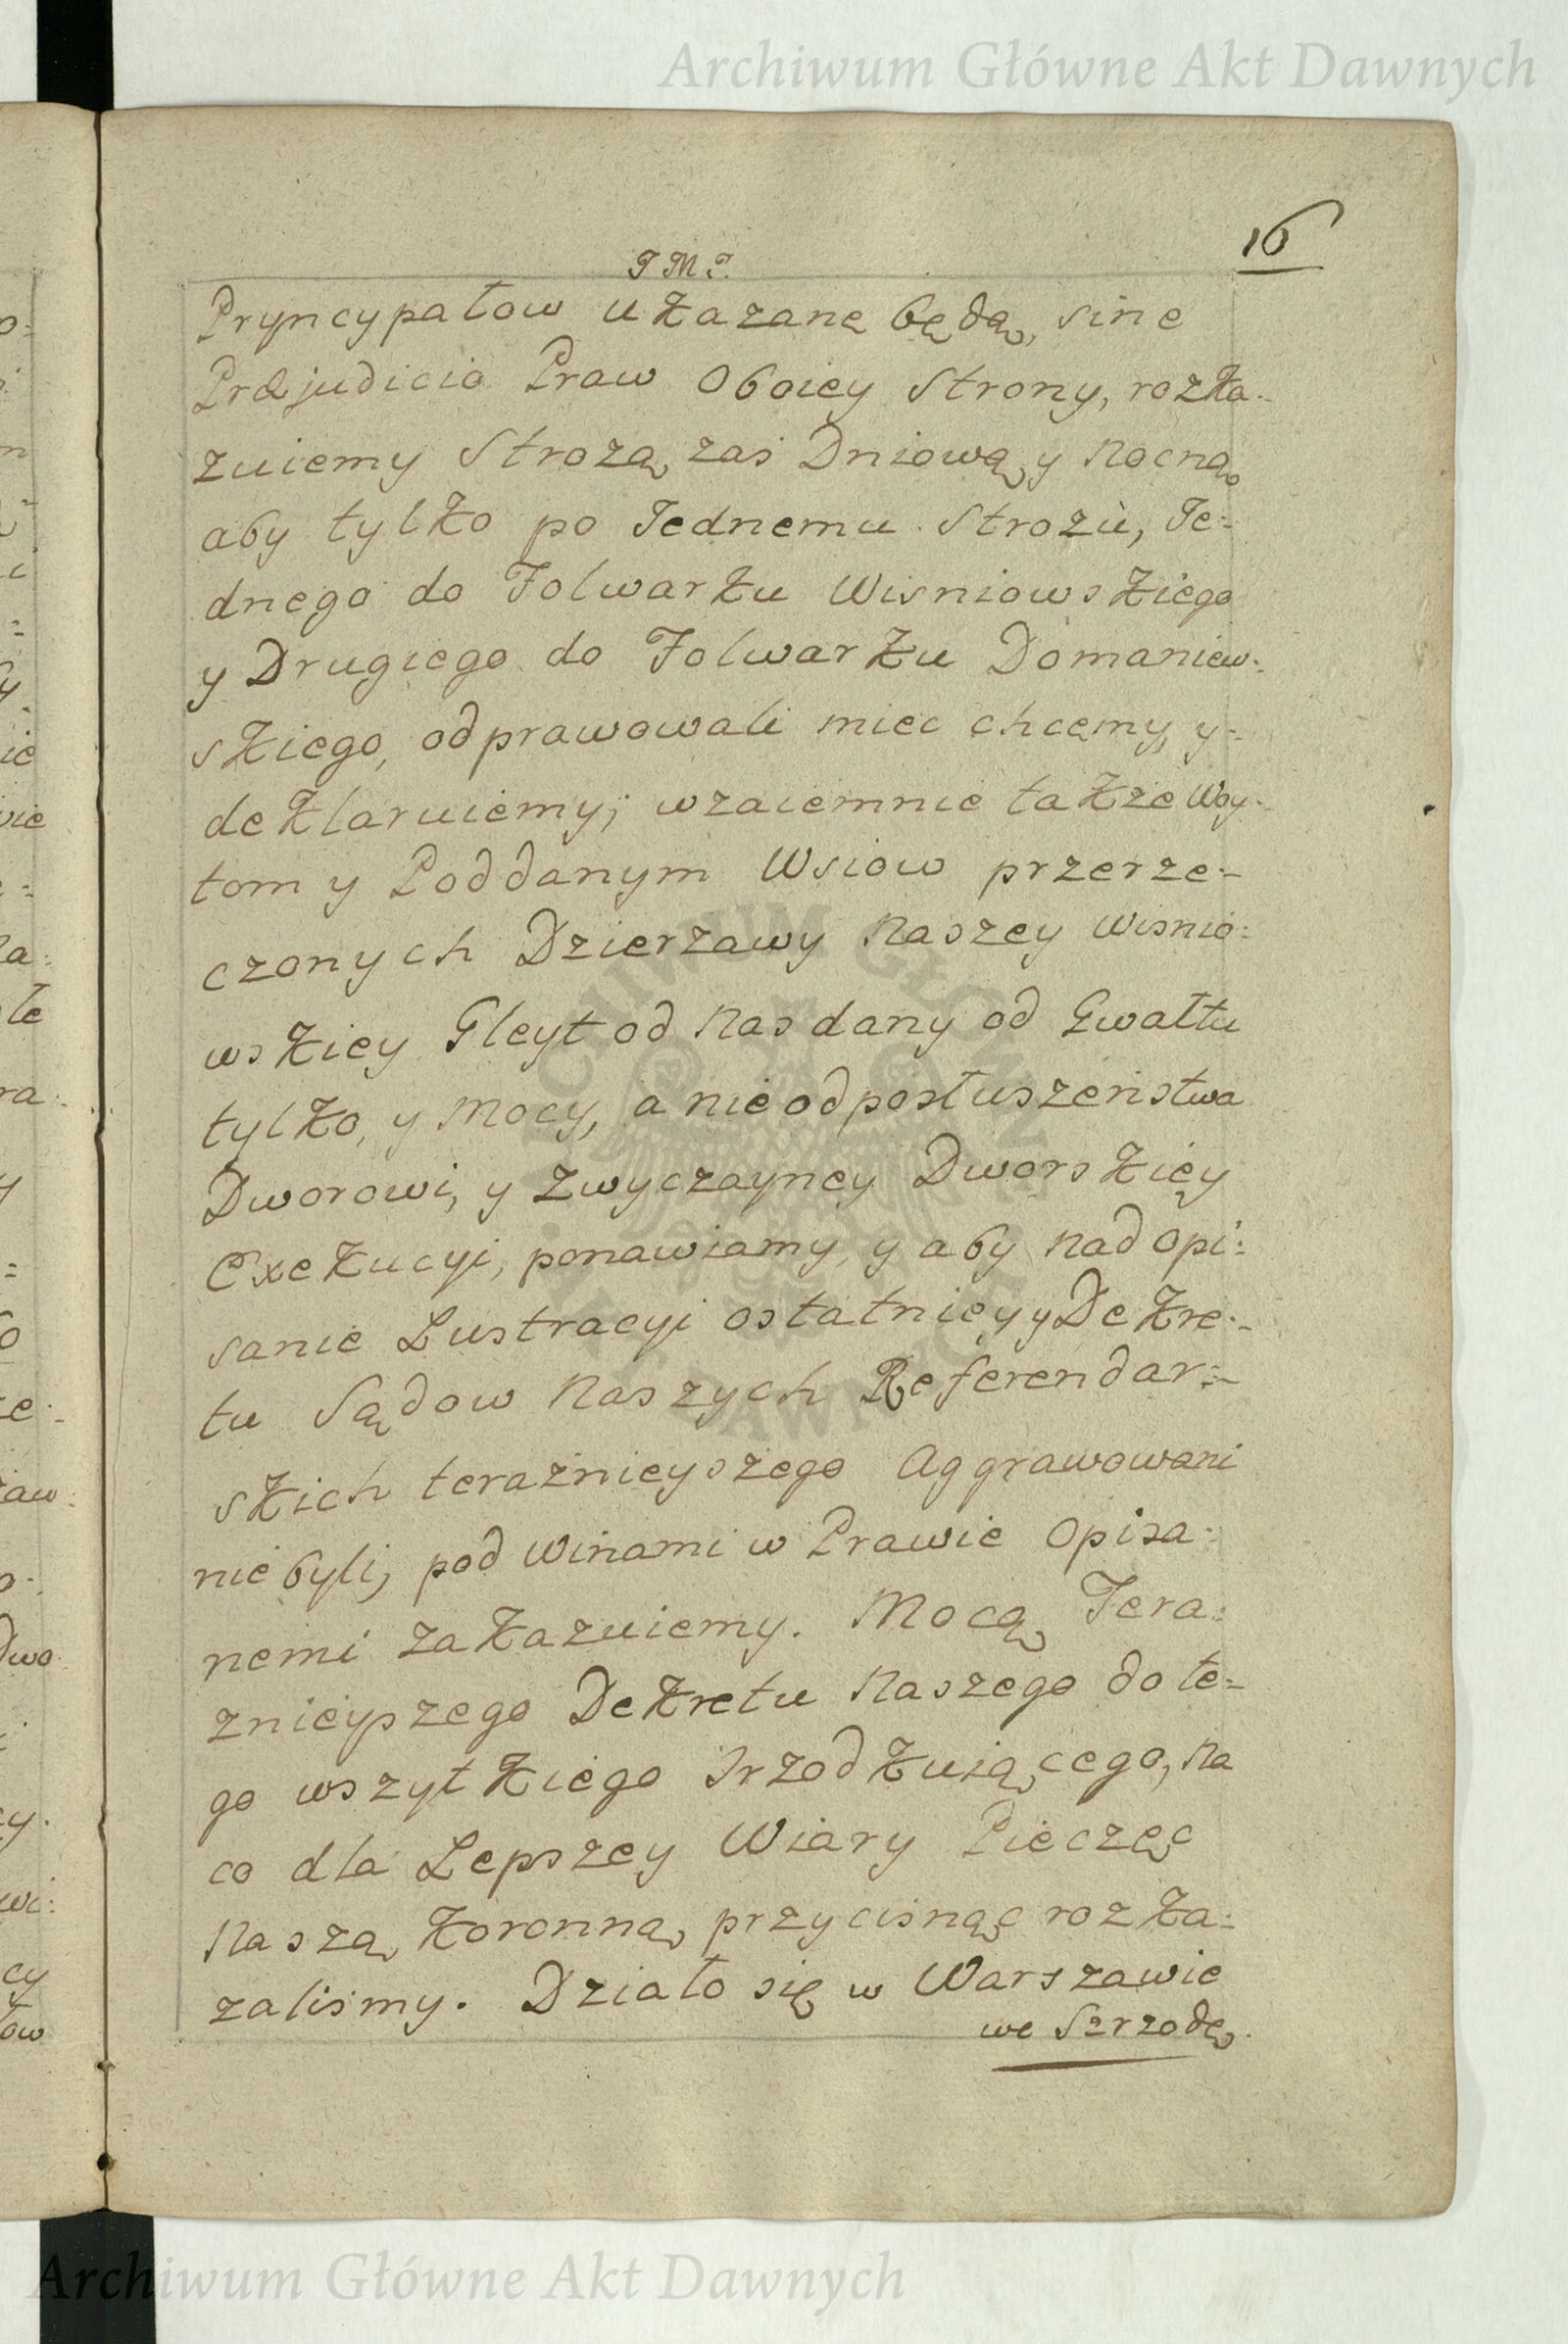 Archiwum Główne Akt Dawnych
16
J M J.
Pryncypałow ukazane będą, sine
Præjudicio Praw Oboiey Strony, rozka-
zuiemy Strozą zas Dniową y Nocną
aby tylko po Jednemu Strozu, Je=
dnego do Folwarku Wisniowskiego
y Drugiego do Folwarku Domaniew-
skiego, odprawowali miec chcemy, y-
deklaruiemy; wzaiemnie takze Woy-
tom y Poddanym Wsiow przerze-
czonych Dzierzawy Naszey Wisnio=
wskiey Gleyt od Nas dany od Gwałtu
tylko, y Mocy, a nie od posłuszenstwa
Dworowi, y Zwyczayney Dworskiey
Exekucyi, ponawiamy, y aby nad opi=
sanie Lustracyi ostatniey y Dekre-
tu Sądow Naszych Referendar=
skich teraznieyszego Aggrawowani
nie byli, pod Winami w Prawie Opisa-
nemi zakazuiemy. Mocą Tera=
znieyszego Dekretu Naszego do te=
go wszytkiego Srzodkuiącego, Na
co dla Lepszey Wiary Pieczęc
Naszą Koronną przycisnąc rozka=
zalismy. Działo się w Warszawie
we Szrzodę.
Archiwum Główne Akt Dawnych